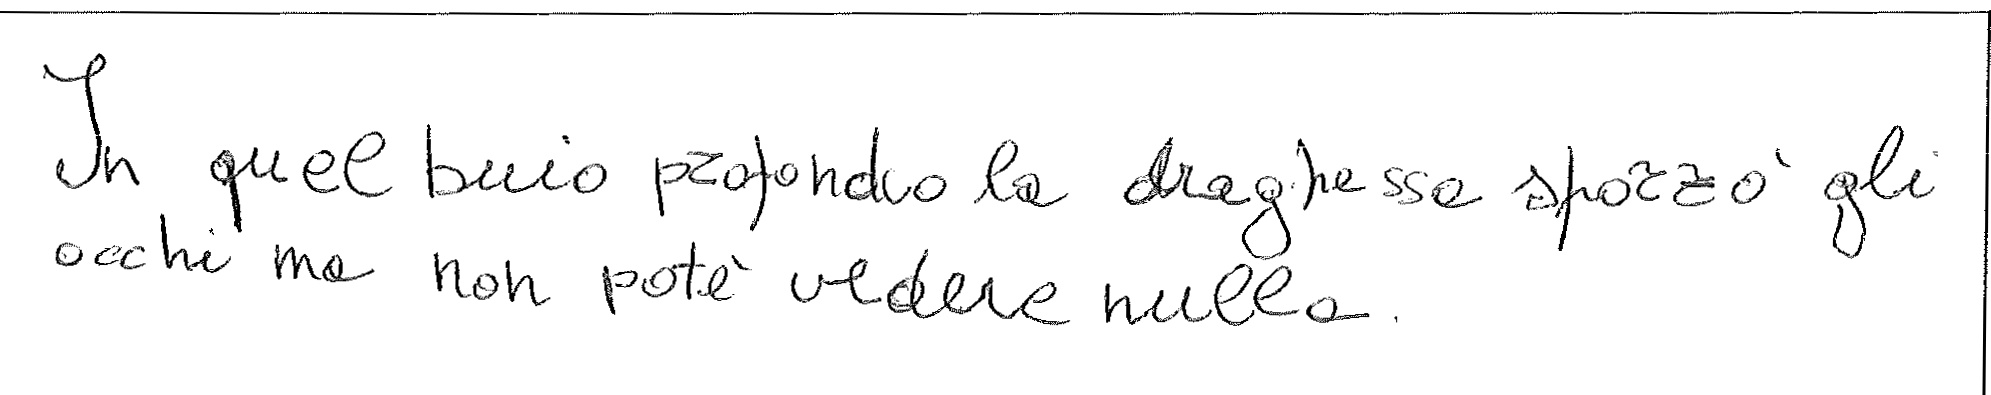 In quel buio profondo la draghessa sporzzò gli
occhi ma non potè vedere nulla.